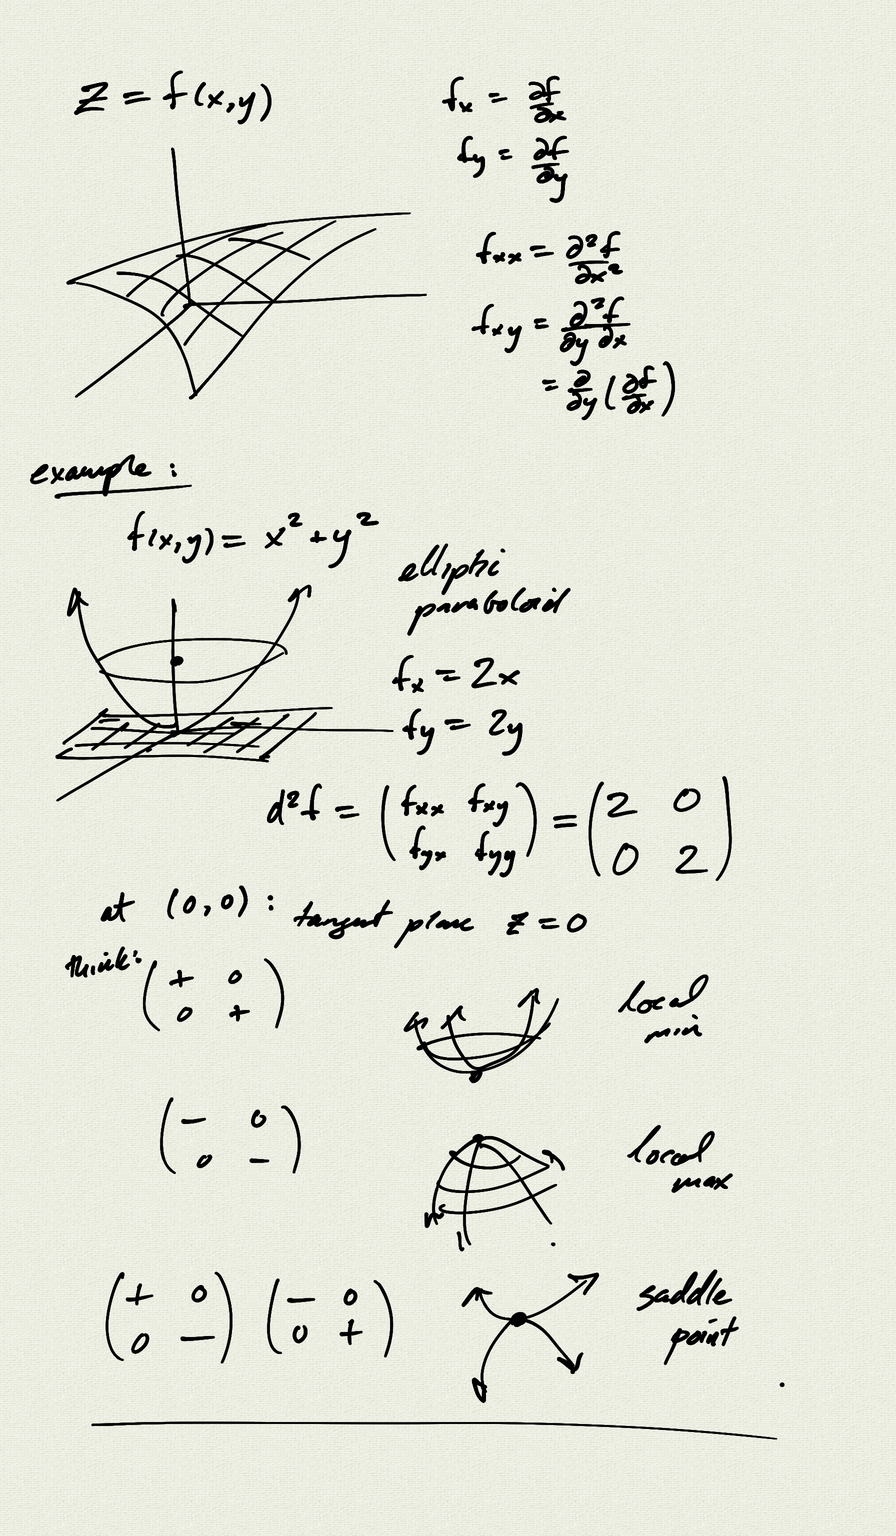 z = f(x,y)
fx = ∂f/∂x
fy = ∂f/∂y
fxx = ∂²f/∂x²
fxy = ∂²f/∂y ∂x
= ∂/∂y (∂f/∂x)
example:
f(x,y) = x² + y²
elliptic
paraboloid
fx = 2x
fy = 2y
d²f = (fxx fxy) = (2 0)
(fyx fyy) (0 2)
at (0,0): tangent plane z = 0
think: (+ 0)
(0 +)
local
min
(- 0)
(0 -)
local
max
(+ 0) (- 0)
(0 -) (0 +)
saddle
point